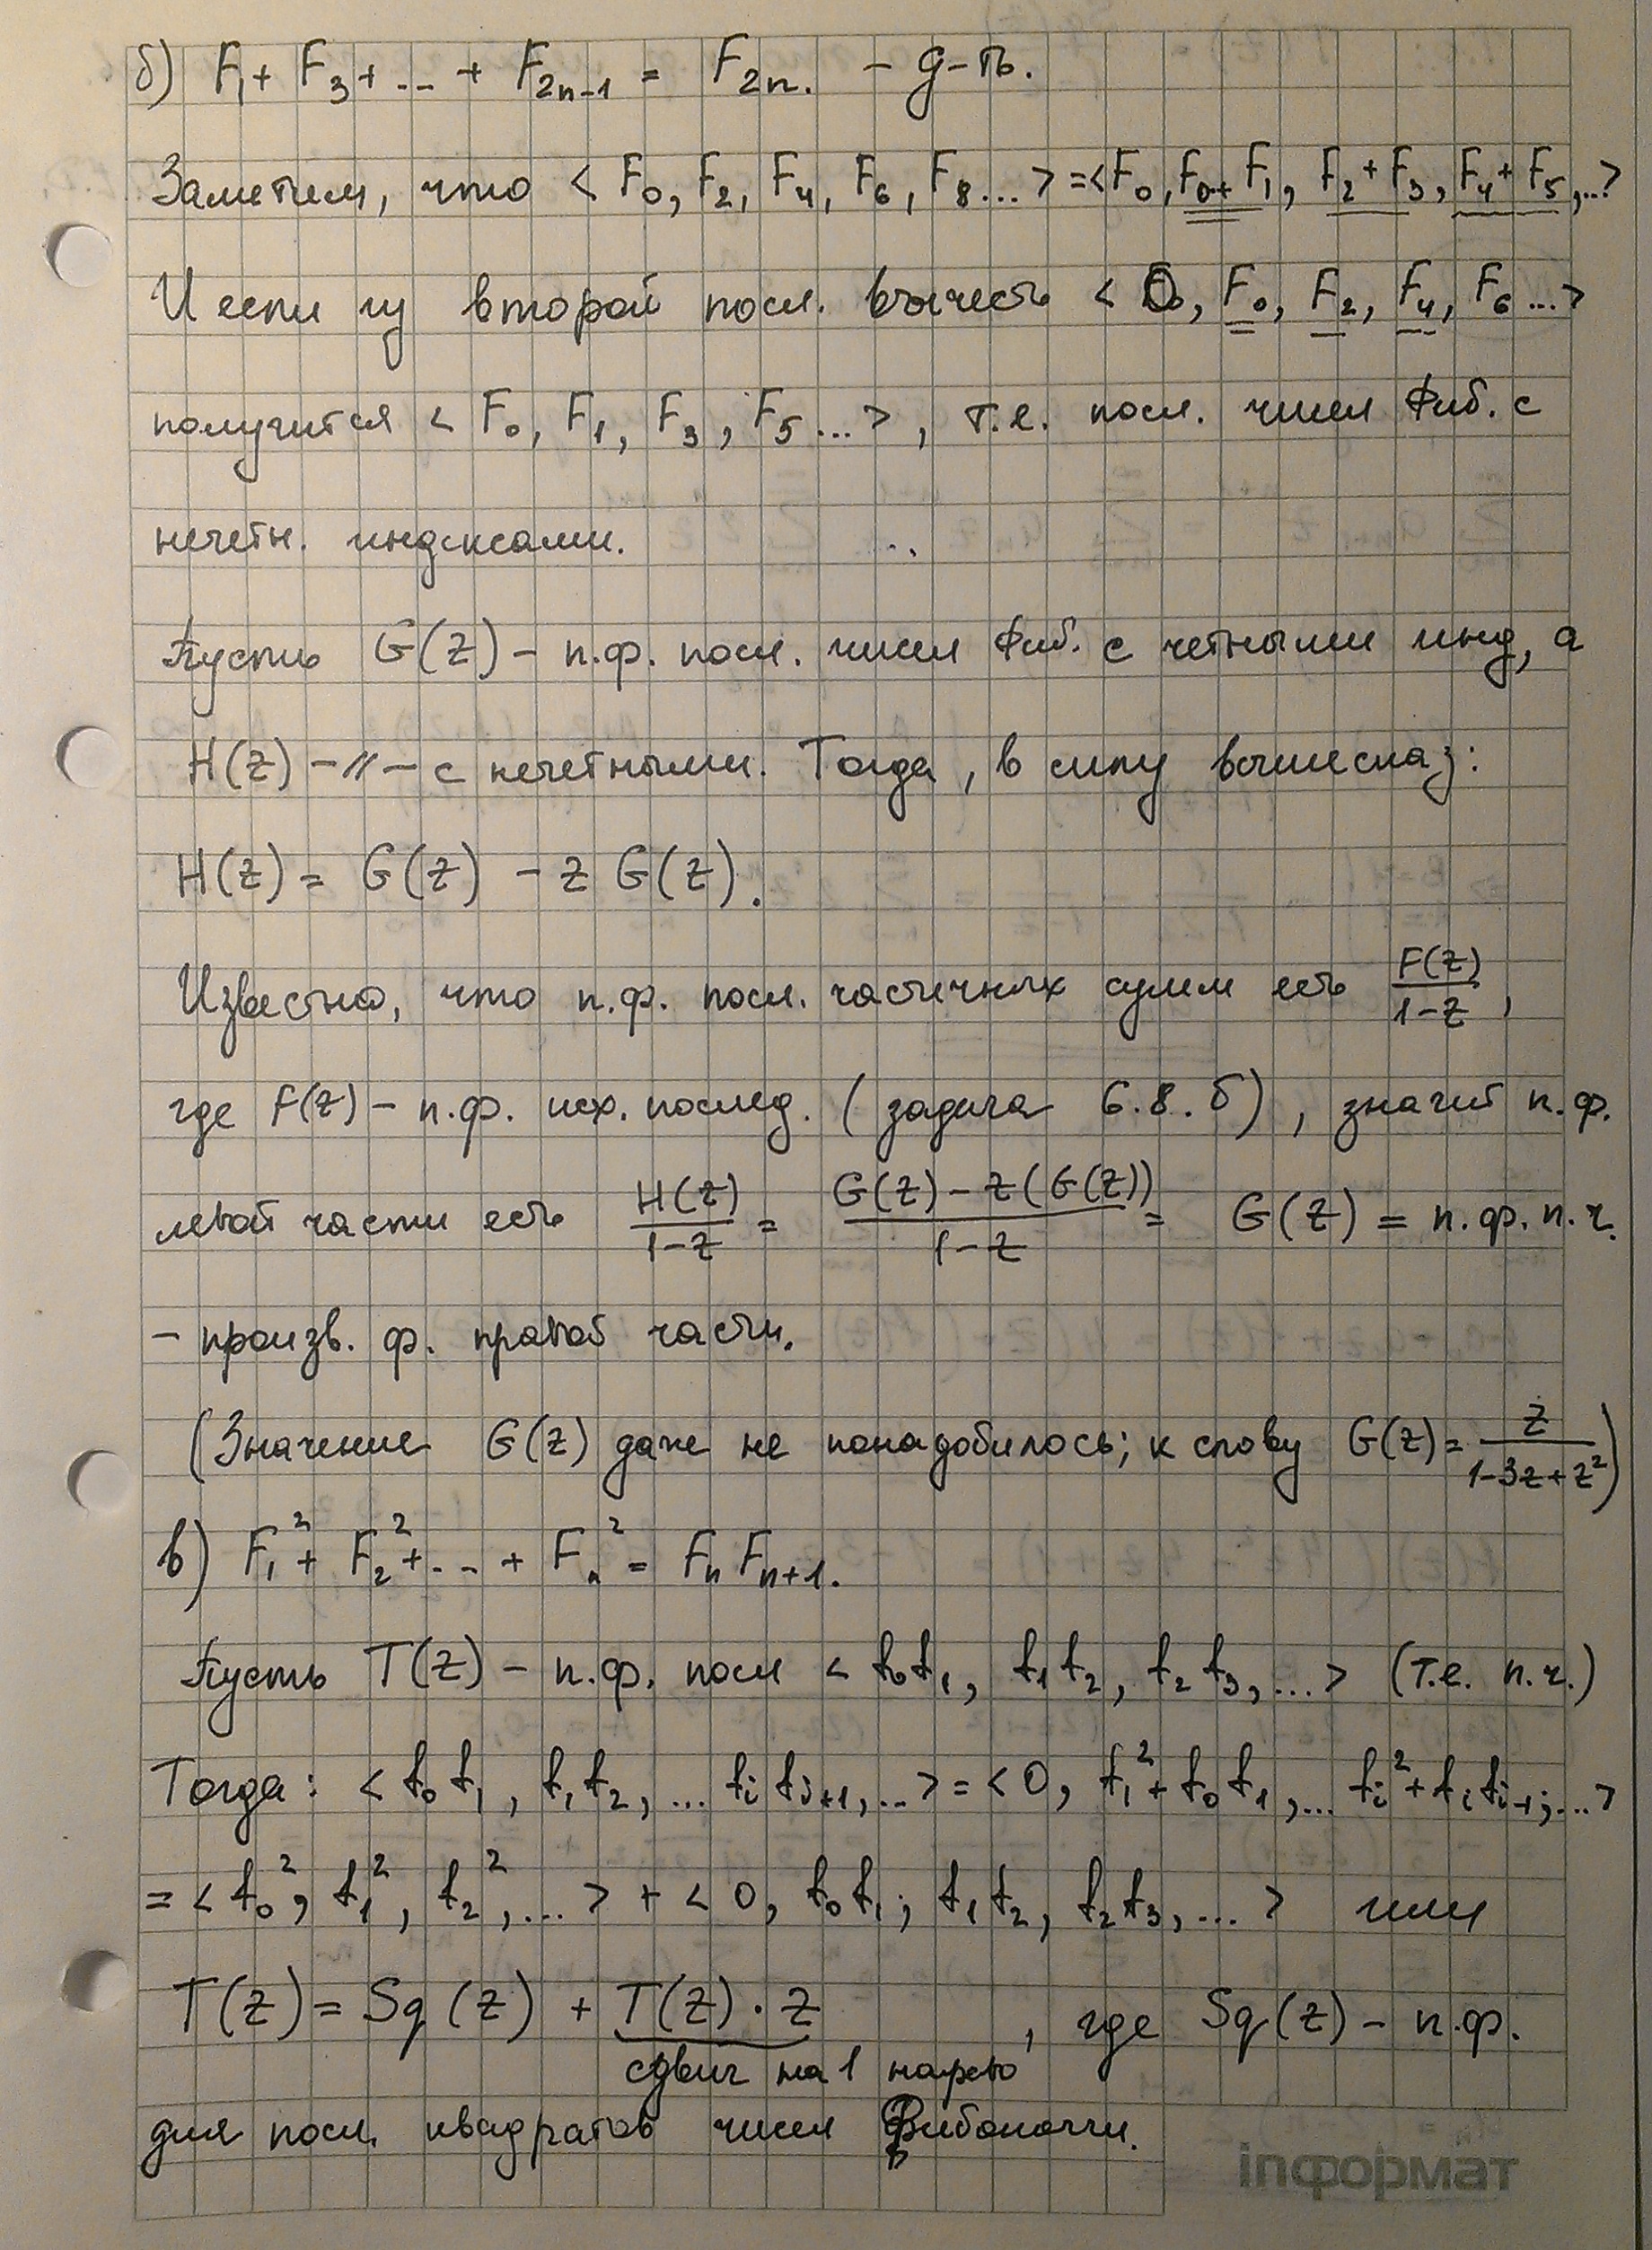 б) F₁ + F₃ + ... + F₂ₙ₋₁ = F₂ₙ. – g-ть.
Заметим, что < F₀, F₂, F₄, F₆, F₈... > = < F₀, F₀ + F₁, F₂ + F₃, F₄ + F₅,...>
И если из второй посл. вычесть < 0, F₀, F₂, F₄, F₆ ... >
получится < F₀, F₁, F₃, F₅ ... >, т.е. посл. чисел Фиб. с
нечетн. индексами.
Пусть G(z) – п.ф. посл. чисел Фиб. с четными инд, а
H(z) –//– с нечетными. Тогда, в силу вышесказ:
H(z) = G(z) – z G(z).
Известно, что п.ф. посл. частичных сумм есть F(z)/(1-z),
где F(z) – п.ф. исх. послед. (задача 6.8.б), значит п.ф.
левой части есть H(z)/(1-z) = (G(z) – z(G(z)))/(1-z) = G(z) = п.ф.п.ч.
– произв. ф. правой части.
(Значение G(z) даже не понадобилось; к слову G(z) = z/(1-3z+z²))
в) F₁² + F₂² + ... + Fₙ² = Fₙ Fₙ₊₁.
Пусть T(z) – п.ф. посл < t₀t₁, t₁t₂, t₂t₃, ... > (т.е. п.ч.)
Тогда: < t₀t₁, t₁t₂, ... tᵢtᵢ₊₁, ... > = < 0, t₁² + t₀t₁, ... tᵢ² + tᵢtᵢ₋₁; ... >
= < t₀², t₁², t₂², ... > + < 0, t₀t₁; t₁t₂, t₂t₃, ... > или
T(z) = Sq(z) + T(z) · z , где Sq(z) – п.ф.
сдвиг на 1 вправо
для посл. квадратов чисел Фибоначчи.
інформат